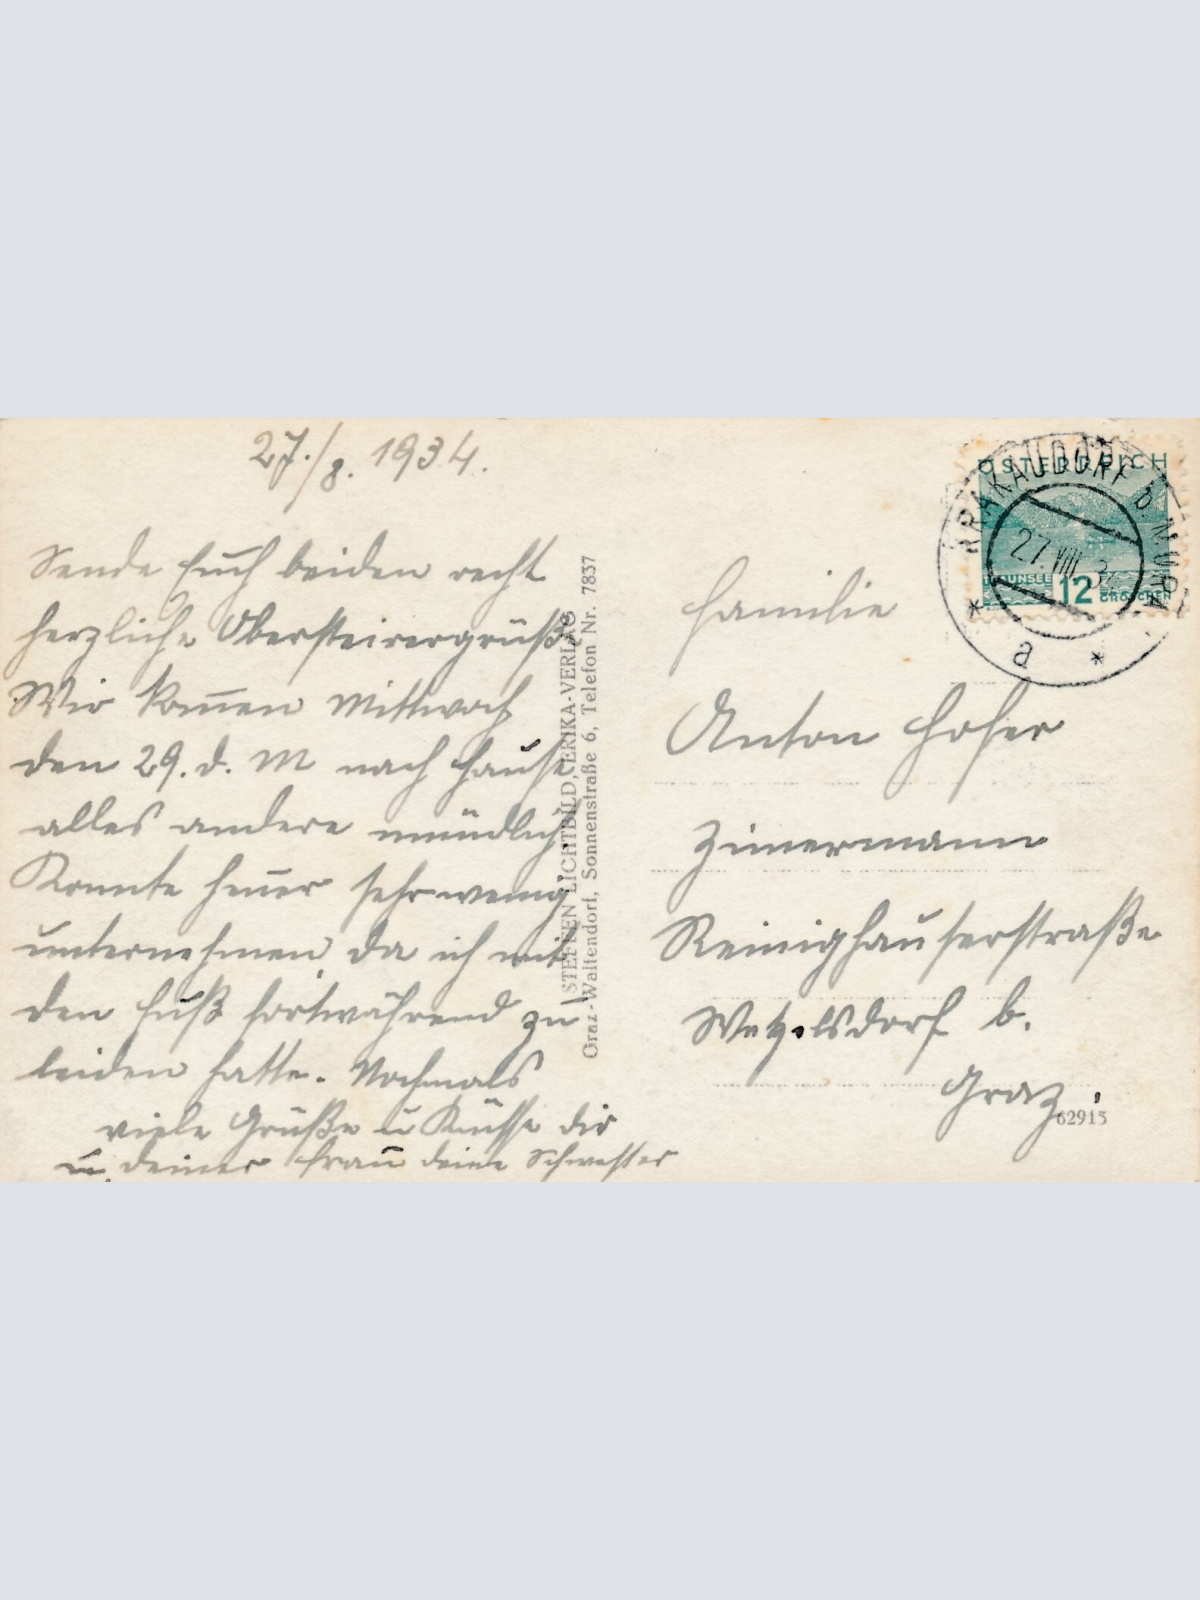 27./8. 1934.
Sende Euch beiden recht
herzliche Obersteirergrüße
Wir kom̄en Mittwoch
den 29. d. M nach Hause
alles andere mündlich
Konnte heuer sehr wenig
unternehmen da ich mit
den Fuß fortwährend zu
leiden hatte. Nochmals
viele Grüße u Küsse dir
u. deiner Frau deine Schwester
STEFFEN LICHTBILD, ERIKA-VERLAG
Graz-Waltendorf, Sonnenstraße 6, Telefon Nr. 7837
ÖSTERREICH
TRAUNSEE 12 GROSCHEN
KRAKAUDORF b. MURAU
27. VIII. 34
* a *
Familie
Anton Hofer
Zimermann
Reinighauserstraße
Wetzelsdorf b.
Graz.
62915